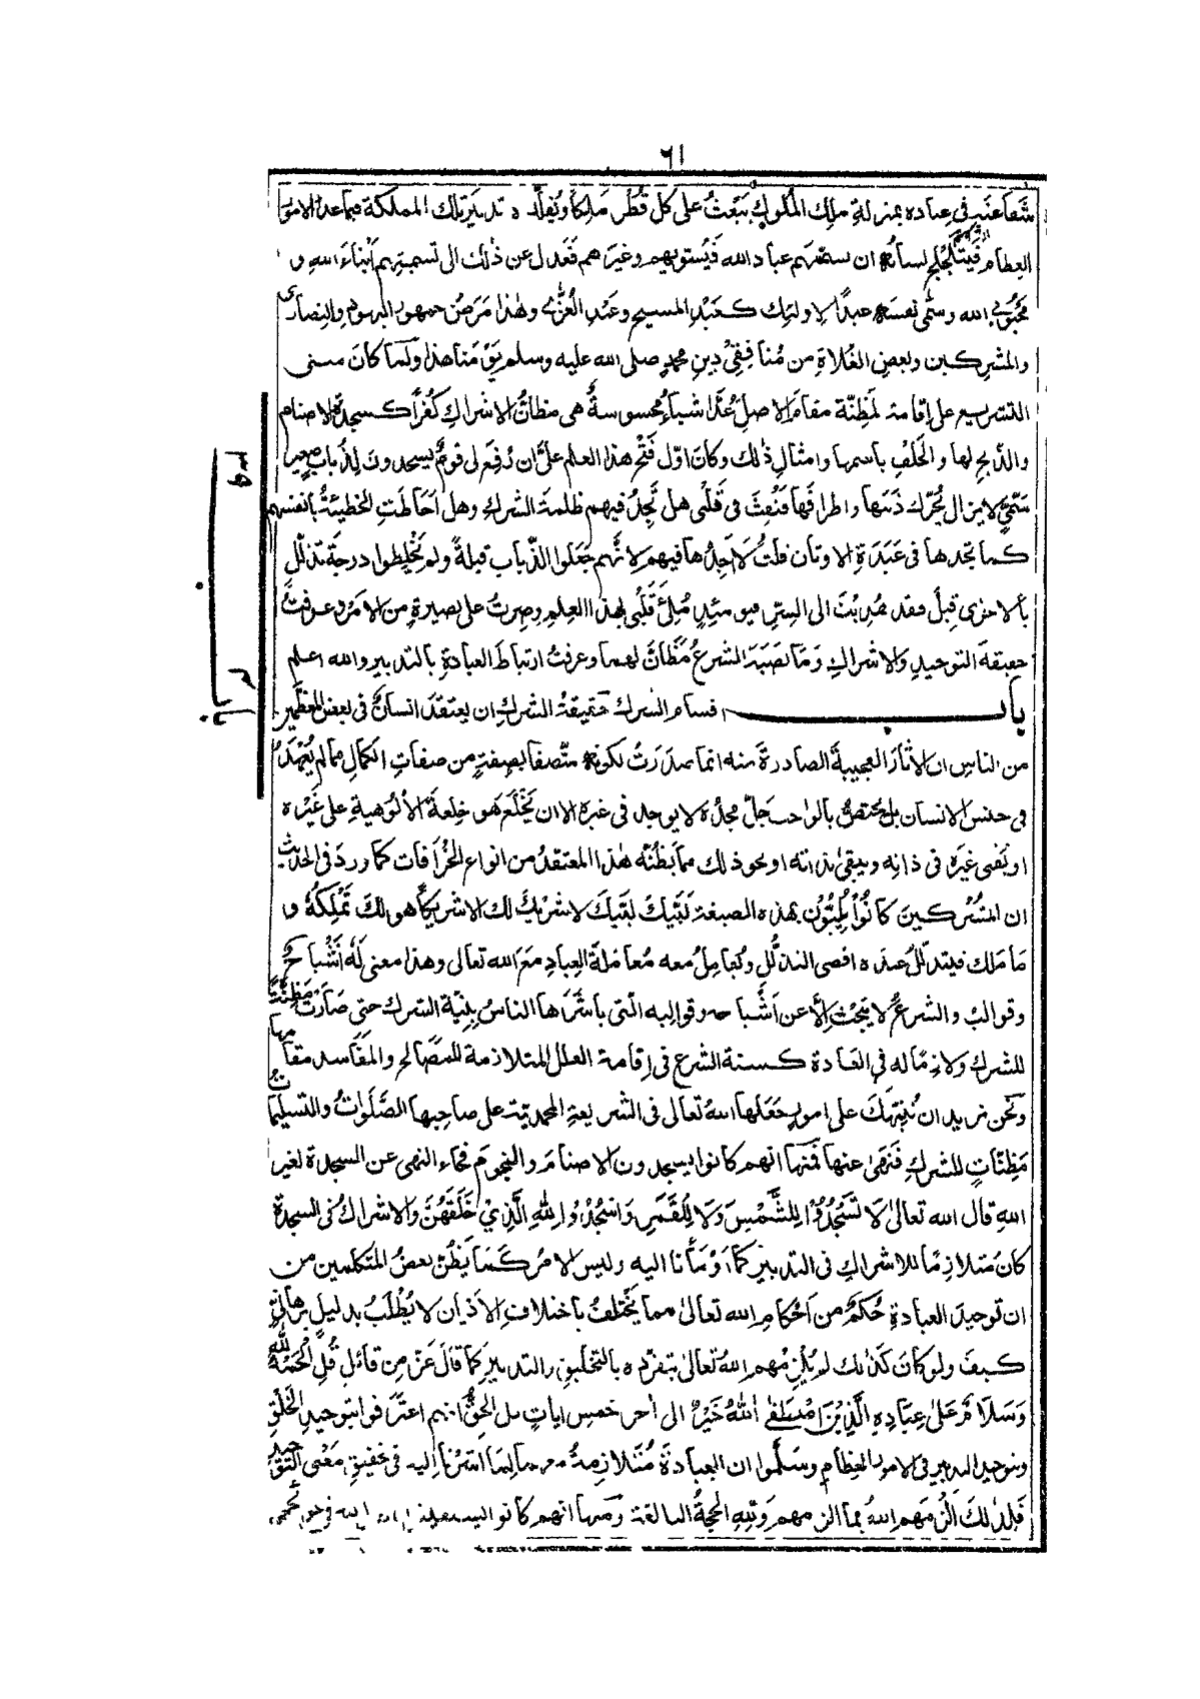 ٦١
شفاعتهم في عباده بمنزلة ملك الملوك يبعث على كل قطر ملكا ويقلده تدبير تلك المملكة فيما عدا الامور
العظام فيتلجلج لسانه ان يسميهم عباد الله فيسويهم وغيرهم فعدل عن ذلك الى تسميتهم أبناء الله و
محبوبي الله وسمى نفسه عبدا لاولئك كعبد المسيح وعبد العزى وهذا مرض جمهور اليهود والنصارى
والمشركين وبعض الغلاة من منافقي دين محمد صلى الله عليه وسلم يومنا هذا ولما كان مبنى
التشريع على إقامة المظنة مقام الاصل عد اشياء محسوسة هي مظان الاشراك كفرا كسجدة الاصنام
والذبح لها والحلف باسمها وامثال ذلك وكان اول فتح هذا العلم علي ان رفع لي قوم يسجدون لذباب صغير
سمي لا يزال يحرك ذنبها واطرافها فنفث في قلبي هل تجد فيهم ظلمة الشرك وهل احاطت الخطيئة بانفسهم
كما تجدها في عبدة الاوثان قلت لا أجدها فيهم لانهم جعلوا الذباب قبلة ولم يخلطوا درجة تذلل
بالاخرى قيل فقد هديت الى السر فيومئذ ملئ قلبي بهذا العلم وصرت على بصيرة من الامر وعرفت
حقيقة التوحيد والاشراك وما نصبه الشرع مظان لهما وعرفت ارتباط العبادة بالتدبير والله اعلم
باب اقسام الشرك حقيقة الشرك ان يعتقد انسان في بعض المعظمين
من الناس ان الآثار العجيبة الصادرة منه انما صدرت لكونه متصفا بصفة من صفات الكمال مما لم يعهد
في جنس الانسان بل يختص بالواجب جل مجده لا يوجد في غيره الا ان يخلع هو خلعة الألوهية على غيره
او يفنى غيره في ذاته ويبقى بذاته او نحو ذلك مما يظنه هذا المعتقد من انواع الخرافات كما ورد في الحديث
ان المشركين كانوا يلبون بهذه الصيغة لبيك لبيك لا شريك لك الا شريكا هو لك تملكه و
ما ملك فيتذلل عنده اقصى التذلل ويعامل معه معاملة العباد مع الله تعالى وهذا معنى له أشباح
وقوالب والشرع لا يبحث إلا عن أشباحه وقوالبه التي باشرها الناس بنية الشرك حتى صارت مظنة
للشرك ولازما له في العادة كسنة الشرع في إقامة العلل المتلازمة للمصالح والمفاسد مقامها
ونحن نريد ان ننبهك على امور جعلها الله تعالى في الشريعة المحمدية على صاحبها الصلوات والتسليمات
مظنات للشرك فنهى عنها فمنها انهم كانوا يسجدون الاصنام والنجوم فجاء النهي عن السجدة لغير
الله قال الله تعالى لا تسجدوا للشمس ولا للقمر واسجدوا لله الذي خلقهن والاشراك في السجدة
كان متلازما للاشراك في التدبير كما اومأنا اليه وليس الامر كما يظن بعض المتكلمين من
ان توحيد العبادة حكم من أحكام الله تعالى مما يختلف باختلاف الاديان لا يطلب بدليل برهاني
كيف ولو كان كذلك لم يلزمهم الله تعالى بتفرده بالتخليق والتدبير كما قال عز من قائل قل الحمد لله
وسلام على عباده الذين اصطفى الله خير الى أخر خمس ايات بل الحق انهم اعترفوا بتوحيد الخلق
وبتوحيد التدبير في الامور العظام وسلموا ان العبادة متلازمة معهما لما اشرنا إليه في تحقيق معنى التوحيد
فلذلك الزمهم الله بما الزمهم ولله الحجة البالغة ومنها انهم كانوا يستعينون
باب